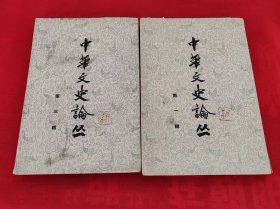 中华文史論丛
第三輯
中华文史論丛
第一輯